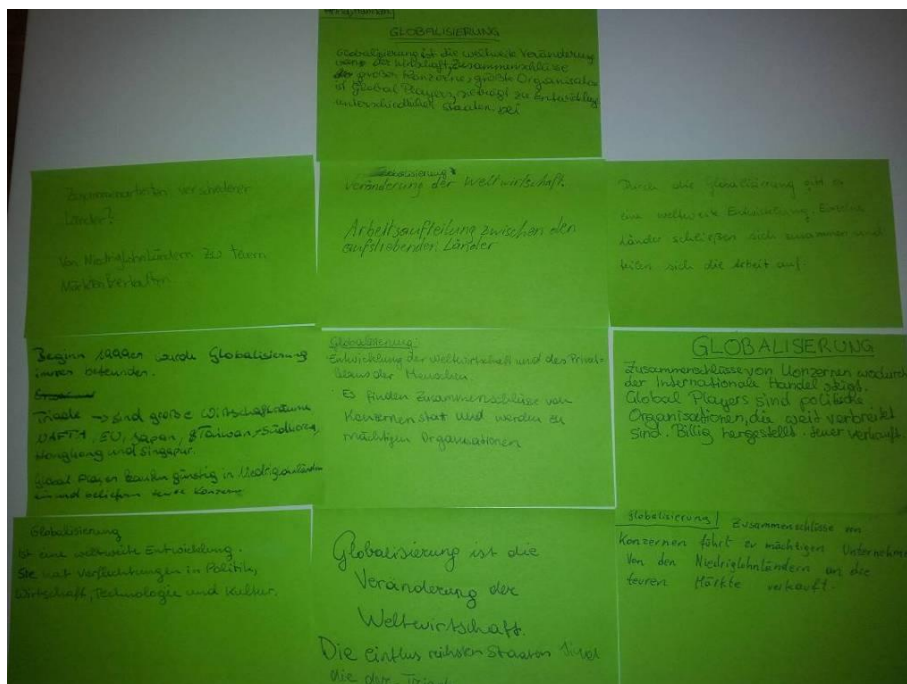 GLOBALISIERUNG
Globalisierung ist die weltweite Veränderung
der Wirtschaft, Zusammenschlüsse
der großer Konzerne, größte Organisation
ist Global Players, zu Entwicklung
unterschiedlicher Staaten bei
Zusammenarbeiten verschiedener
Länder?
Von Niedriglohnländern zu teuern
Märkten
Veränderung der Weltwirtschaft.
Arbeitsaufteilung zwischen den
aufstrebenden Länder
Durch die Globalisierung gibt es
eine weltweite Entwicklung. Einzelne
Länder schließen sich zusammen und
teilen sich die Arbeit auf.
Beginn 1990er wurde Globalisierung
immer
Triade → sind große Wirtschaftsräume
NAFTA, EU, Japan, Taiwan, Südkorea,
Hongkong und Singapur.
Global Player kaufen günstig in Niedriglohnländern
ein und
Globalisierung:
Entwicklung der Weltwirtschaft und des Privat-
lebens der Menschen.
Es finden Zusammenschlüsse von
Konzernen stat und werden zu
mächtigen Organisationen
GLOBALISERUNG
Zusammenschlüsse von Konzernen wodurch
der Internationale Handel steigt.
Global Players sind politische
Organisationen, die weit verbreitet
sind. Billig hergestellt. teuer verkauft.
Globalisierung
ist eine weltweite Entwicklung.
Sie hat Verflechtungen in Politik,
Wirtschaft, Technologie und Kultur.
Globalisierung ist die
Veränderung der
Weltwirtschaft.
Die einflus reichsten Staaten sind
die der Triade
Globalisierung! Zusammenschlüsse von
Konzernen führt zu mächtigen Unternehmen
Von den Niedriglohnländern an die
teuren Märkte verkauft.